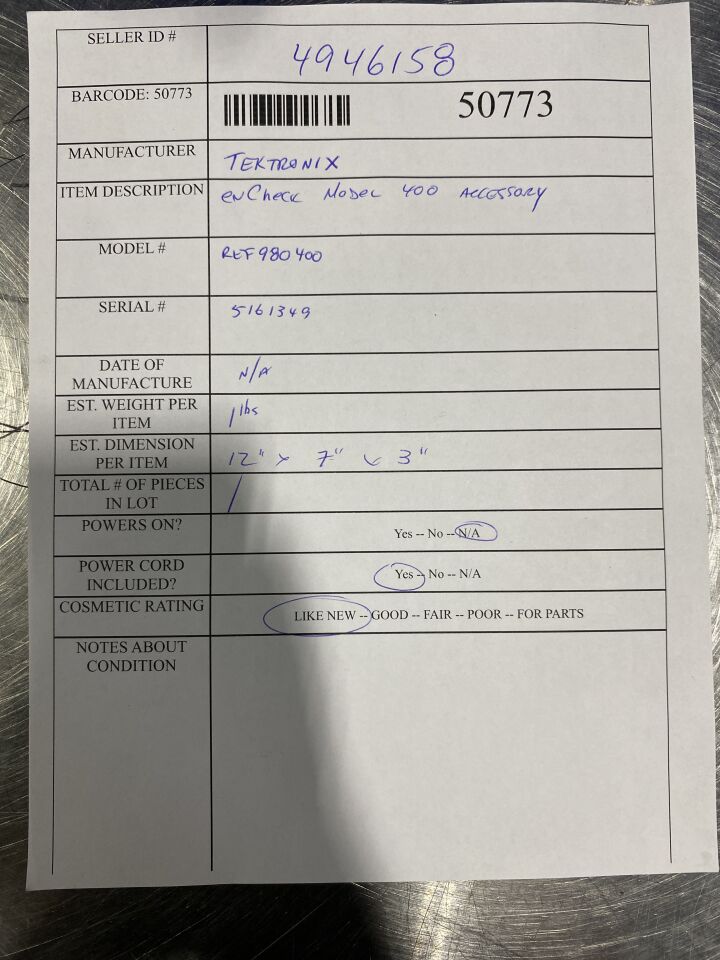 SELLER ID # 4946158
BARCODE: 50773 50773
MANUFACTURER TEKTRONIX
ITEM DESCRIPTION enCheck Model 400 Accessory
MODEL # REF980400
SERIAL # 5161349
DATE OF
MANUFACTURE N/A
EST. WEIGHT PER
ITEM 1 lbs
EST. DIMENSION
PER ITEM 12" x 7" x 3"
TOTAL # OF PIECES
IN LOT 1
POWERS ON? Yes -- No -- N/A
POWER CORD
INCLUDED? Yes -- No -- N/A
COSMETIC RATING LIKE NEW -- GOOD -- FAIR -- POOR -- FOR PARTS
NOTES ABOUT
CONDITION